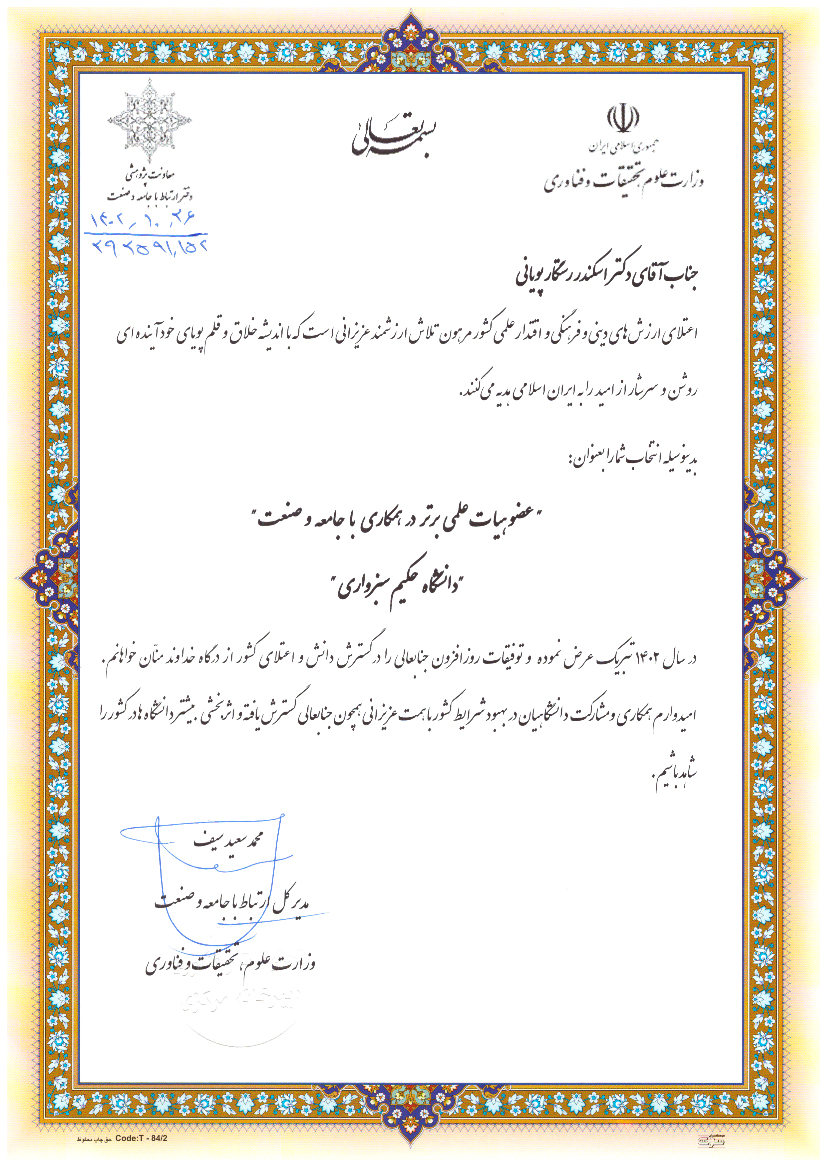 بسمه تعالی
جمهوری اسلامی ایران
وزارت علوم تحقیقات و فناوری
معاونت پژوهشی
دفتر ارتباط با جامعه و صنعت
۱۴۰۲,۱۰,۲۶
۲۹۲۵۹۱,۱۵۲
جناب آقای دکتر اسکندر رستگار پویانی
اعتلای ارزش های دینی و فرهنگی و اقتدار علمی کشور مرهون تلاش ارزشمند عزیزانی است که با اندیشه خلاق و قلم پویای خود آینده ای
روشن و سرشار از امید را به ایران اسلامی هدیه می‌کنند.
بدینوسیله انتخاب شما را بعنوان:
"عضو هیات علمی برتر در همکاری با جامعه و صنعت"
"دانشگاه حکیم سبزواری"
در سال ۱۴۰۲ تبریک عرض نموده و توفیقات روزافزون جنابعالی را در گسترش دانش و اعتلای کشور از درگاه خداوند منّان خواهانم.
امیدوارم همکاری و مشارکت دانشگاهیان در بهبود شرایط کشور با همت عزیزانی همچون جنابعالی گسترش یافته و اثربخشی بیشتر دانشگاه ها در کشور را
شاهد باشیم.
محمد سعید سیف
مدیر کل ارتباط با جامعه و صنعت
وزارت علوم، تحقیقات و فناوری
دبیرخانه مرکزی
حق چاپ محفوظ Code:T - 84/2